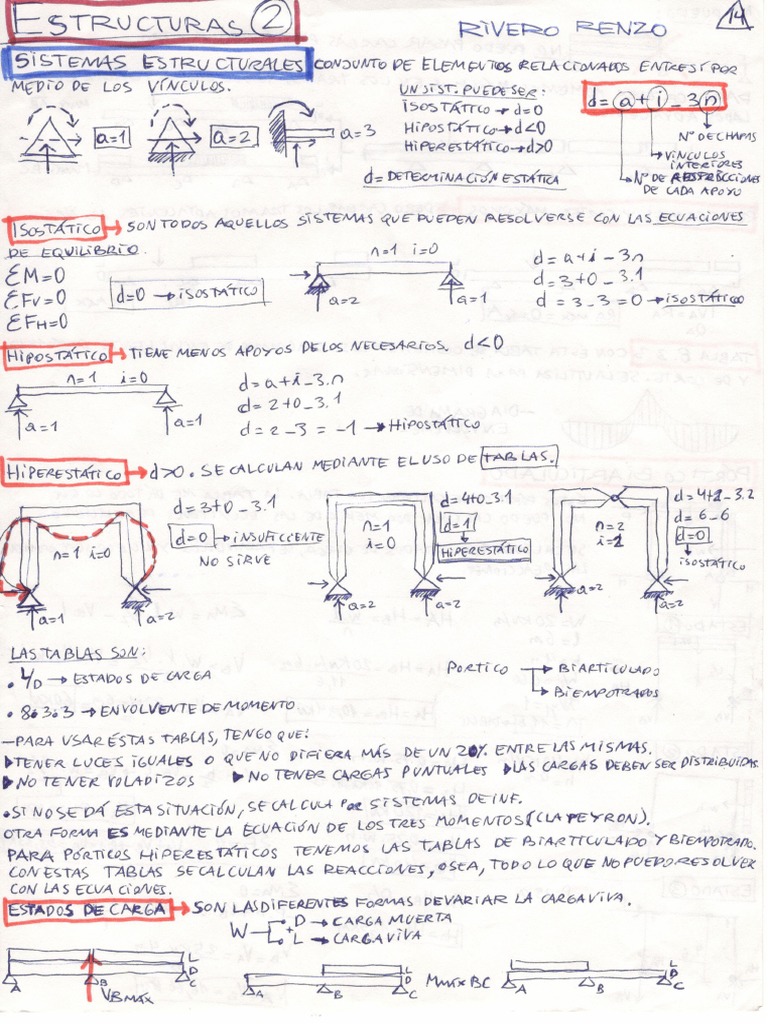 ESTRUCTURAS 2
RIVERO RENZO
14
SISTEMAS ESTRUCTURALES CONJUNTO DE ELEMENTOS RELACIONADOS ENTRE SÍ POR
MEDIO DE LOS VÍNCULOS.
a=1
a=2
a=3
UN SIST. PUEDE SER:
ISOSTÁTICO → d=0
HIPOSTÁTICO → d<0
HIPERESTÁTICO → d>0
d= DETERMINACIÓN ESTÁTICA
d= a+i-3n
Nº DE CHAPAS
VÍNCULOS
INTERIORES
Nº DE RESTRICCIONES
DE CADA APOYO
ISOSTÁTICO → SON TODOS AQUELLOS SISTEMAS QUE PUEDEN RESOLVERSE CON LAS ECUACIONES
DE EQUILIBRIO.
ƐM=0
ƐFV=0
ƐFH=0
d=0 → ISOSTÁTICO
n=1 i=0
a=2
a=1
d= a+i-3n
d=3+0-3.1
d=3-3=0 → ISOSTÁTICO
HIPOSTÁTICO → TIENE MENOS APOYOS DE LOS NECESARIOS. d<0
n=1 i=0
a=1
a=1
d=a+i-3.n
d=2+0-3.1
d=2-3=-1 → HIPOSTÁTICO
HIPERESTÁTICO → d>0. SE CALCULAN MEDIANTE EL USO DE TABLAS.
n=1 i=0
a=1
a=2
d=3+0-3.1
d=0 → INSUFICIENTE
NO SIRVE
n=1
i=0
a=2
a=2
d=4+0-3.1
d=1
HIPERESTÁTICO
n=2
i=2
a=2
a=2
d=4+2-3.2
d=6-6
d=0
ISOSTÁTICO
LAS TABLAS SON:
• L/D → ESTADOS DE CARGA
• 8.3.3 → ENVOLVENTE DE MOMENTO
PORTICO → BIARTICULADO
→ BIEMPOTRADOS
-PARA USAR ÉSTAS TABLAS, TENGO QUE:
▶TENER LUCES IGUALES O QUE NO DIFIERA MÁS DE UN 20% ENTRE LAS MISMAS.
▶NO TENER VOLADIZOS ▶NO TENER CARGAS PUNTUALES ▶LAS CARGAS DEBEN SER DISTRIBUIDAS.
•SI NO SE DÁ ESTA SITUACIÓN, SE CALCULA POR SISTEMAS DE INF.
OTRA FORMA ES MEDIANTE LA ECUACIÓN DE LOS TRES MOMENTOS (CLAPEYRON).
PARA PÓRTICOS HIPERESTÁTICOS TENEMOS LAS TABLAS DE BIARTICULADO Y BIEMPOTRADO.
CON ESTAS TABLAS SE CALCULAN LAS REACCIONES, O SEA, TODO LO QUE NO PUEDO RESOLVER
CON LAS ECUACIONES.
ESTADOS DE CARGA → SON LAS DIFERENTES FORMAS DE VARIAR LA CARGA VIVA.
W D → CARGA MUERTA
+
L → CARGA VIVA
L
D
A B C
VB MÁX
L
D
A B C
MMÁX BC
L
D
A B C